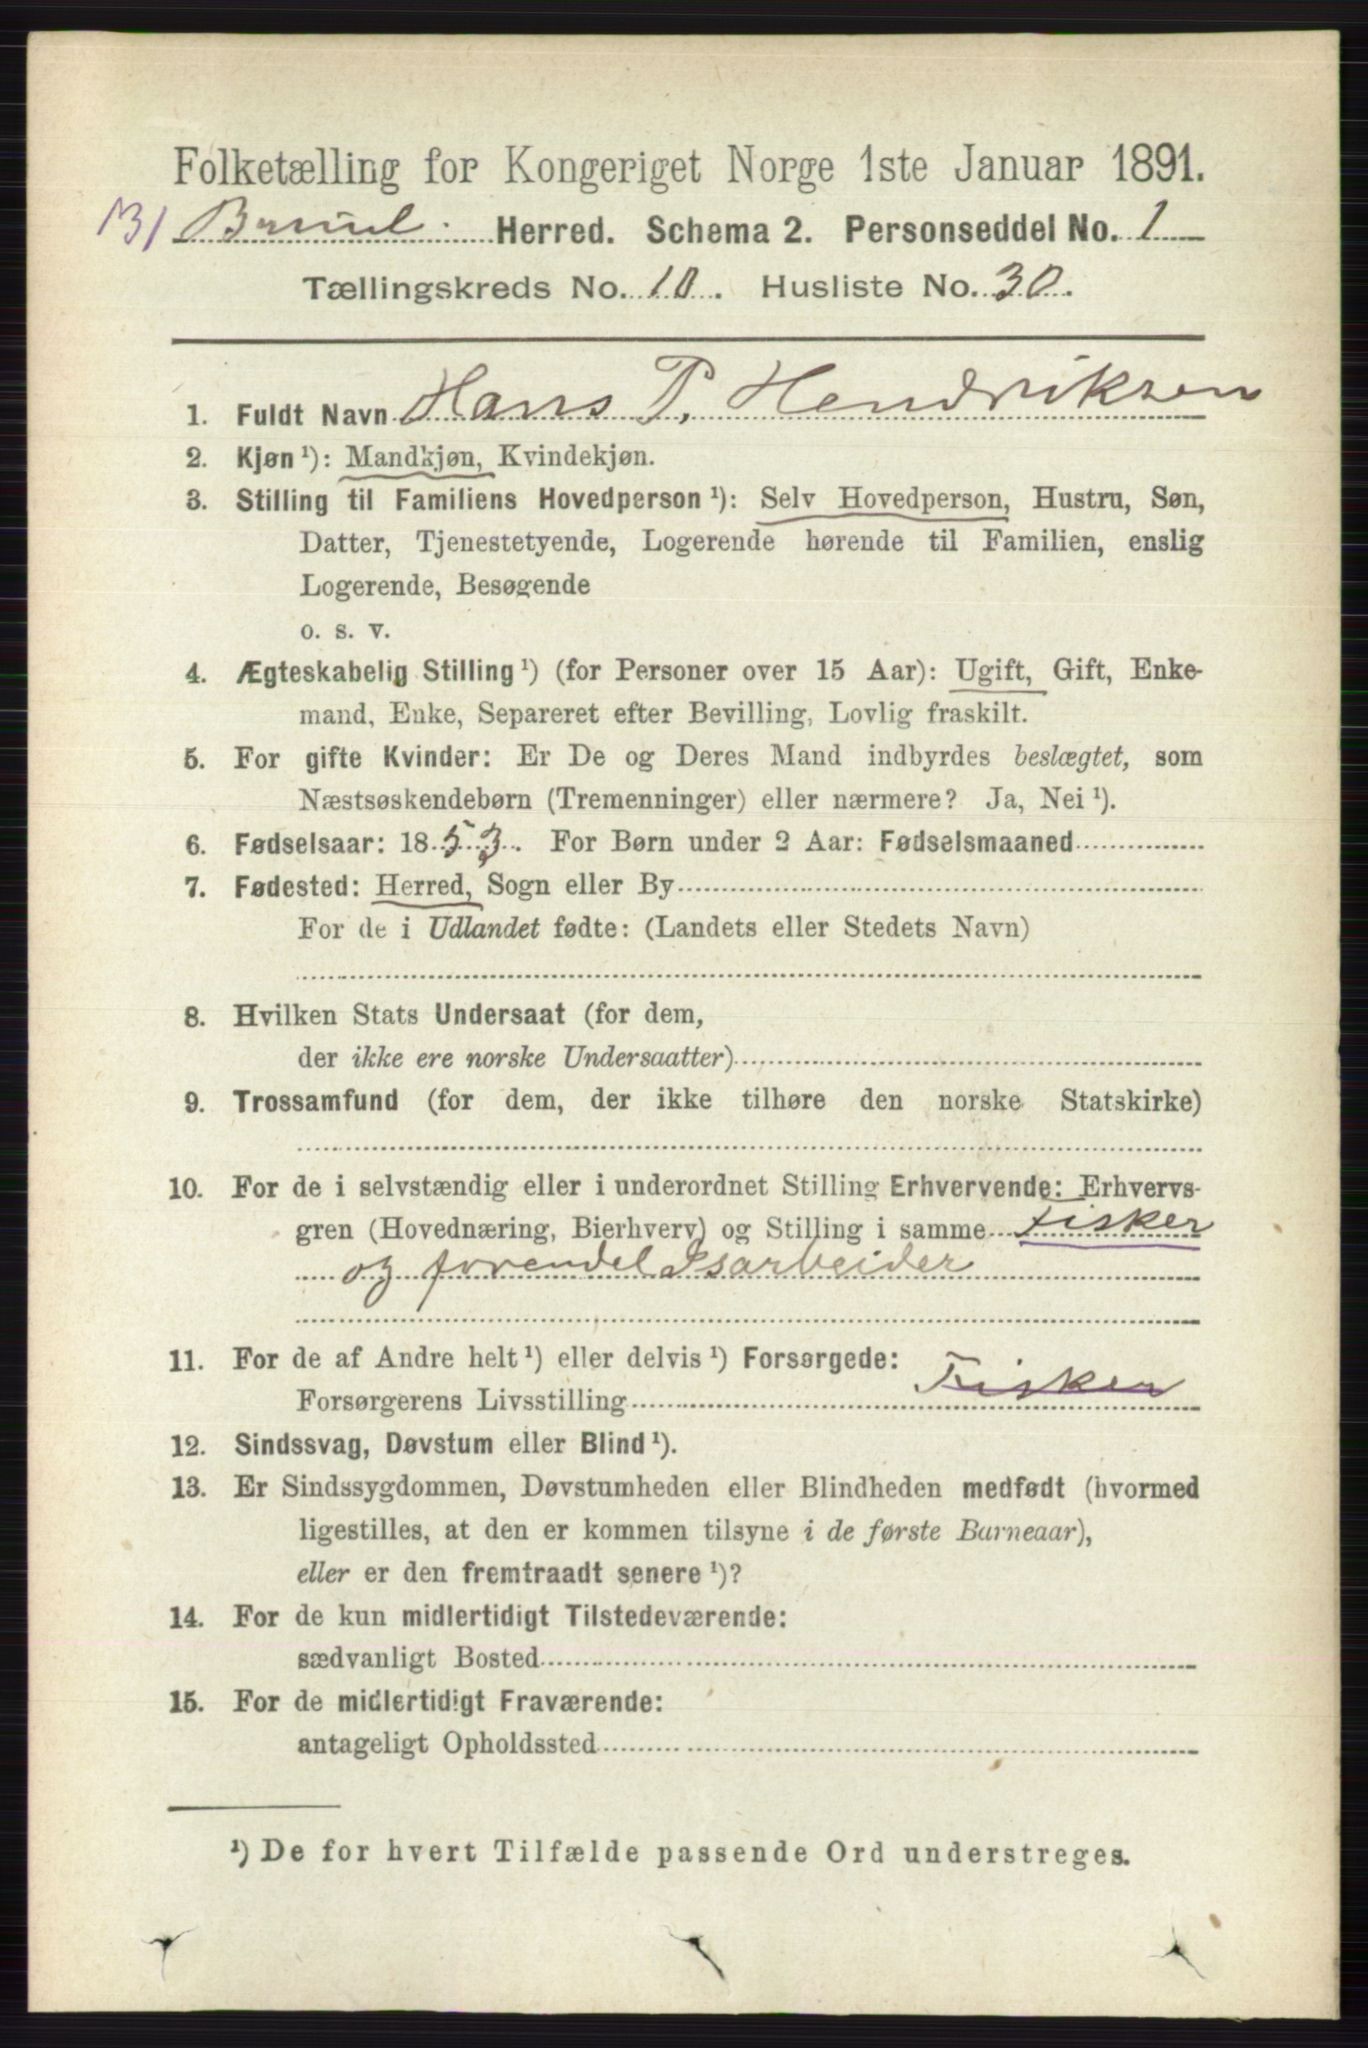 Folketælling for Kongeriget Norge 1ste Januar 1891.
Herred. Schema 2. Personseddel No. 1
Tællingskreds No. 10. Husliste No. 30.
1. Fuldt Navn Hans P. Hendriksen
2. Kjøn ¹): Mandkjøn, Kvindekjøn.
3. Stilling til Familiens Hovedperson ¹): Selv Hovedperson, Hustru, Søn,
Datter, Tjenestetyende, Logerende hørende til Familien, enslig
Logerende, Besøgende
o. s. v.
4. Ægteskabelig Stilling ¹) (for Personer over 15 Aar): Ugift, Gift, Enke-
mand, Enke, Separeret efter Bevilling, Lovlig fraskilt.
5. For gifte Kvinder: Er De og Deres Mand indbyrdes beslægtet, som
Næstsøskendebørn (Tremenninger) eller nærmere? Ja, Nei ¹).
6. Fødselsaar: 1853. For Børn under 2 Aar: Fødselsmaaned
7. Fødested: Herred, Sogn eller By
For de i Udlandet fødte: (Landets eller Stedets Navn)
8. Hvilken Stats Undersaat (for dem,
der ikke ere norske Undersaatter)
9. Trossamfund (for dem, der ikke tilhøre den norske Statskirke)
10. For de i selvstændig eller i underordnet Stilling Erhvervende: Erhvervs-
gren (Hovednæring, Bierhverv) og Stilling i samme Fisker
og forendel Isarbeider
11. For de af Andre helt ¹) eller delvis ¹) Forsørgede:
Forsørgerens Livsstilling Fisker
12. Sindssvag, Døvstum eller Blind ¹).
13. Er Sindssygdommen, Døvstumheden eller Blindheden medfødt (hvormed
ligestilles, at den er kommen tilsyne i de første Barneaar),
eller er den fremtraadt senere ¹)?
14. For de kun midlertidigt Tilstedeværende:
sædvanligt Bosted
15. For de midlertidigt Fraværende:
antageligt Opholdssted
¹) De for hvert Tilfælde passende Ord understreges.